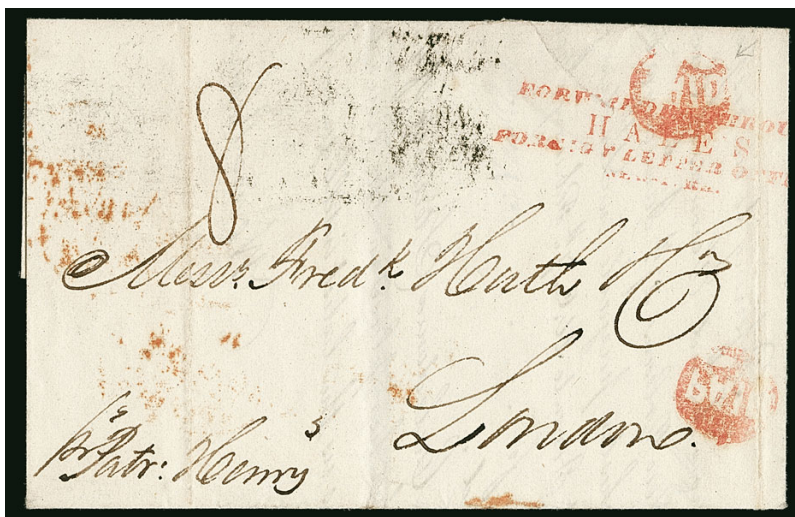 8
FORWARDED THROU
HALES
FOREIGN LETTER OFFI
NEW YORK.
Messrs. Fredk. Huth & Co
London.
pr Patr: Henry
PAID